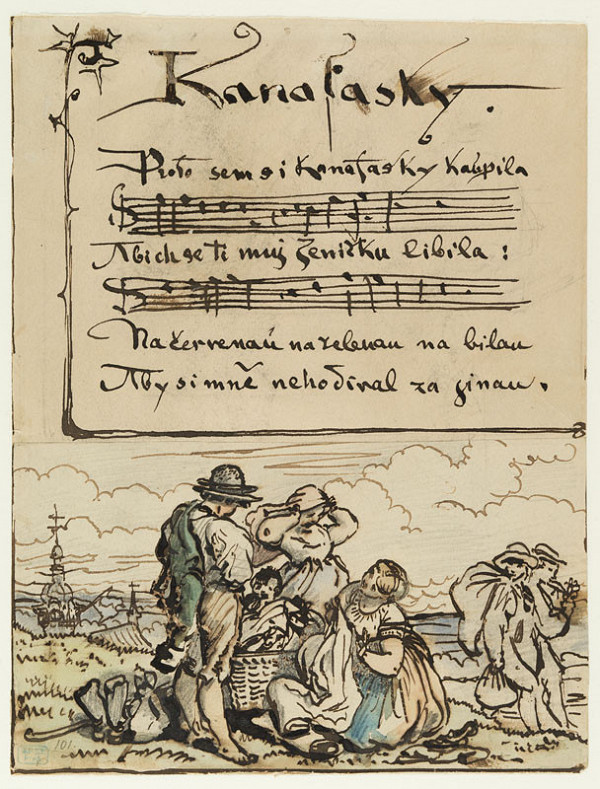 Kanafasky.
Proto sem si Kanafasky kaupila
Abich se ti muj geničku libila :
Na červenaú na zelenau na bilau
Aby si mně nehoďival za ginau.
101.